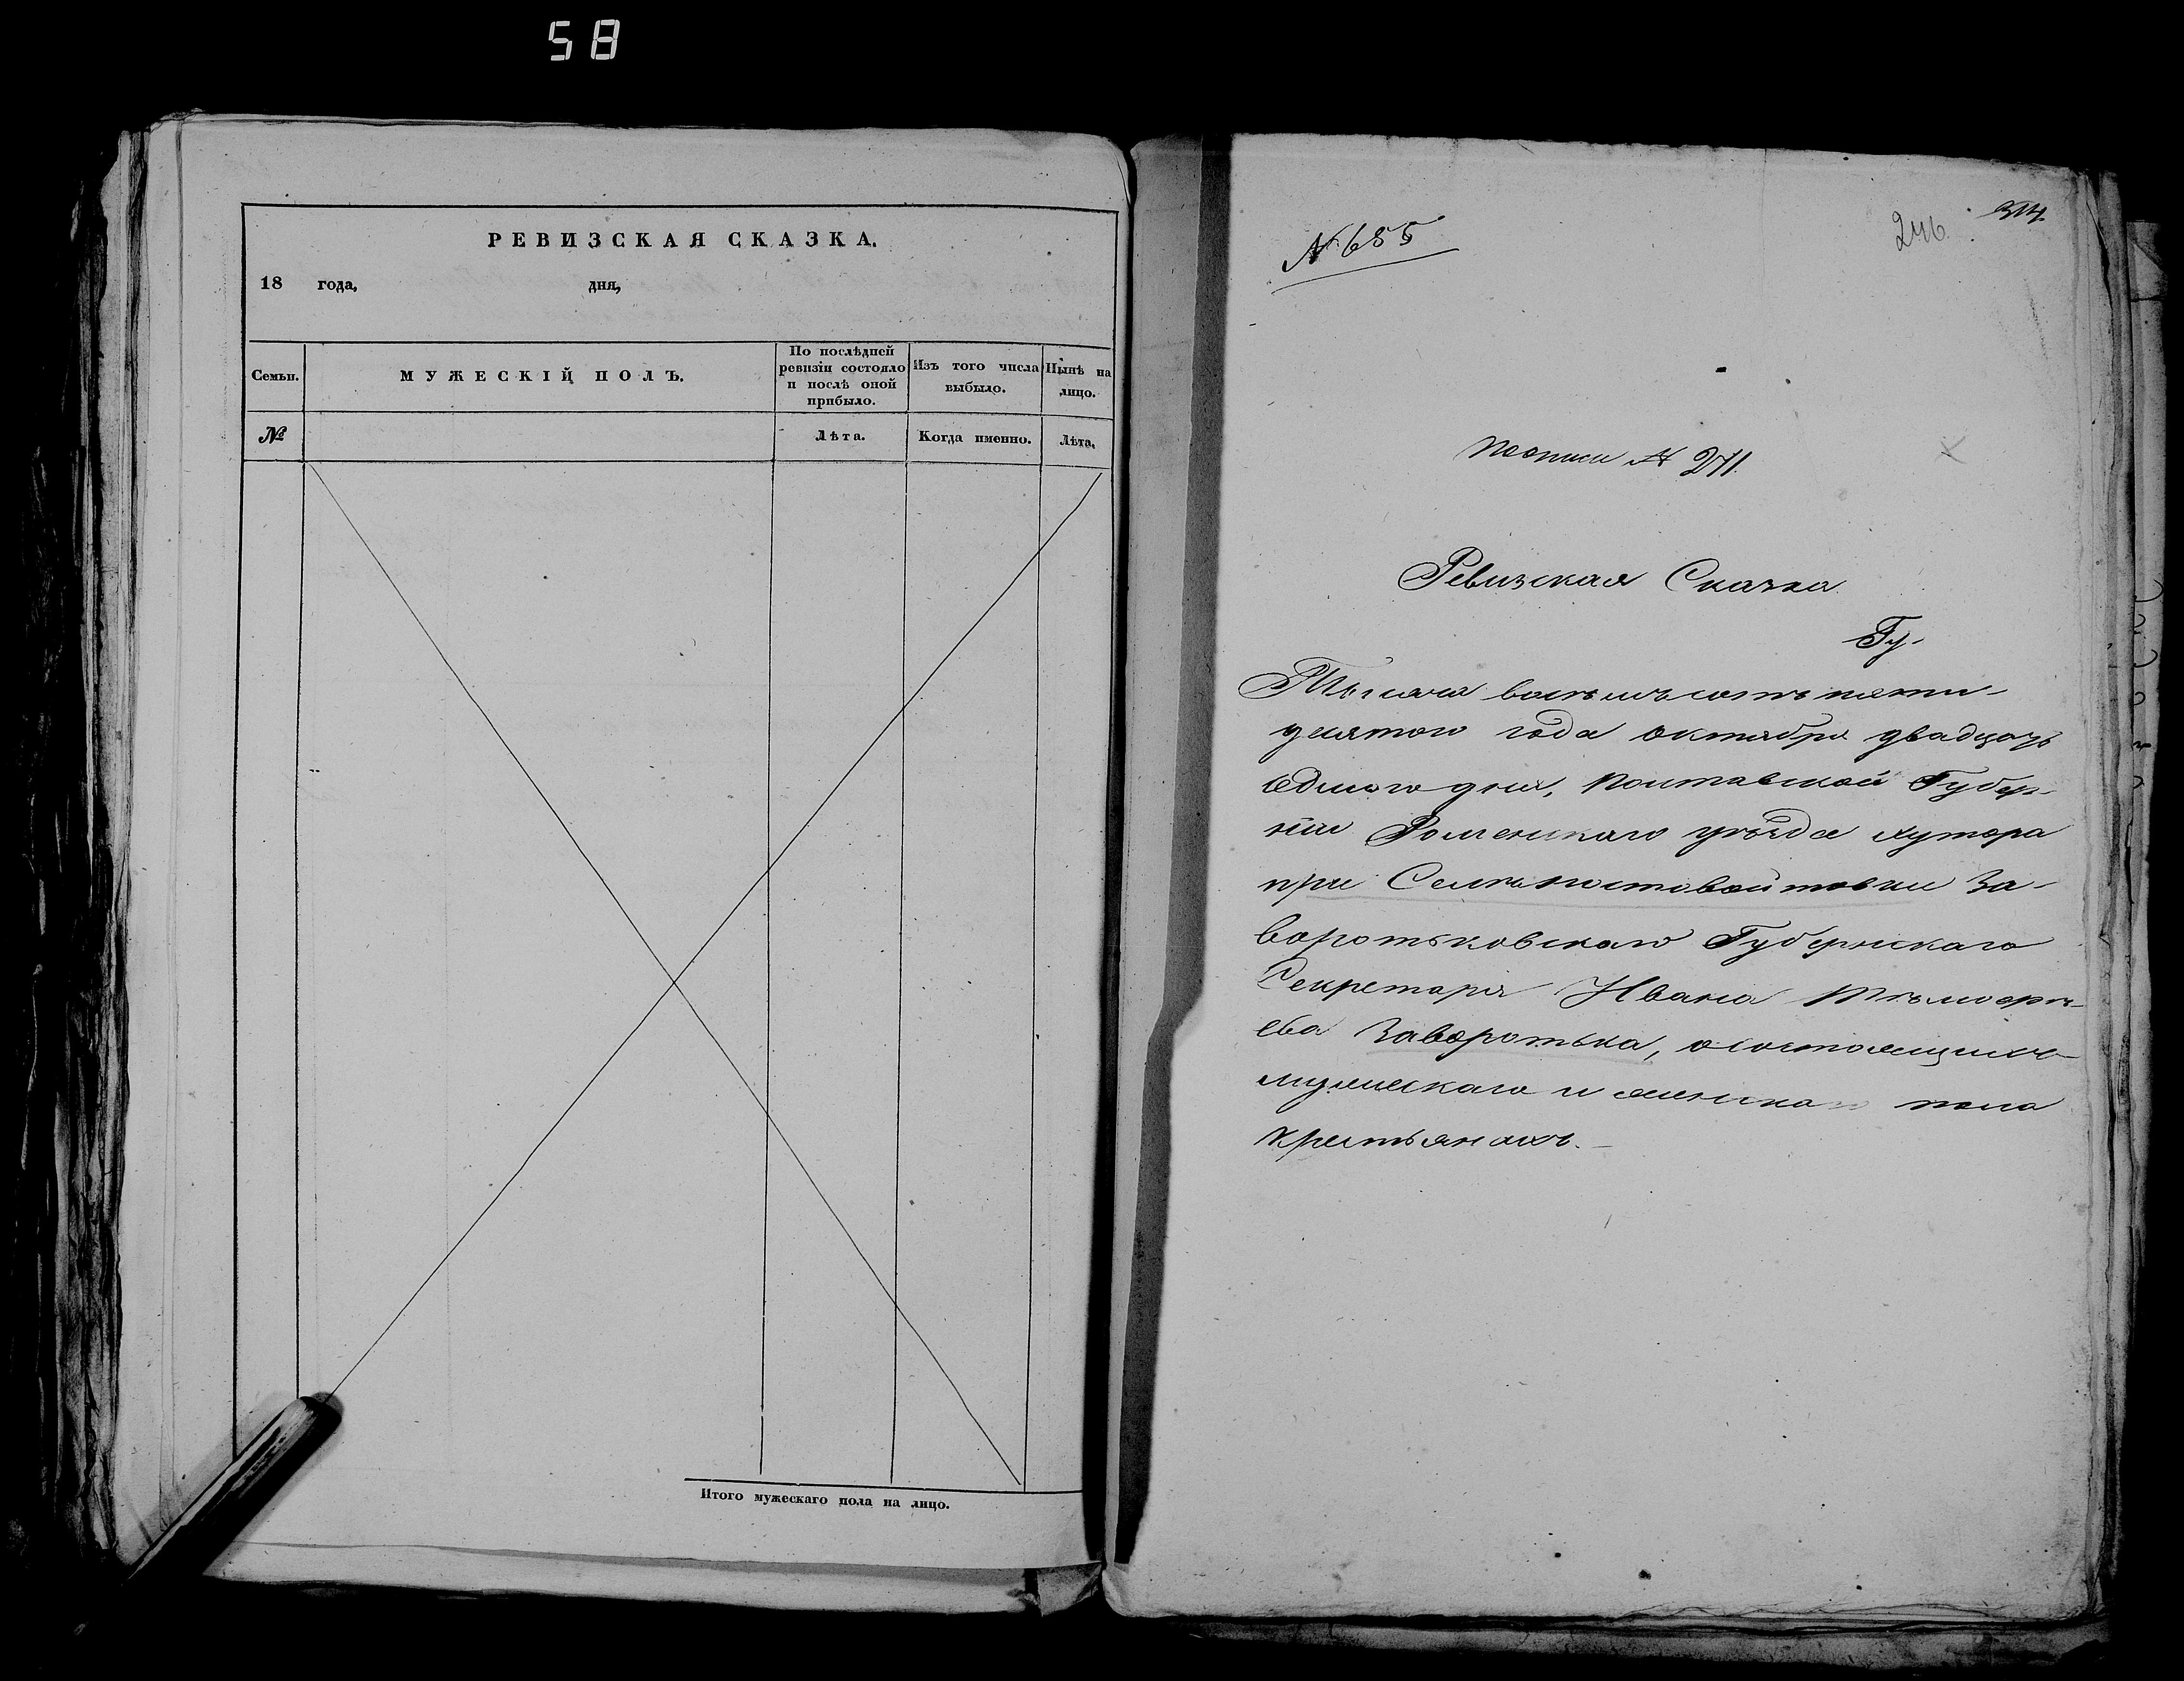 58
РЕВИЗСКАЯ СКАЗКА.
18 года, дня,
Семьи.
МУЖЕСКІЙ ПОЛЪ.
По послѣдней ревизіи состояло и послѣ оной прибыло.
Изъ того числа выбыло.
Нынѣ на лицо.
№
Лѣта.
Когда именно.
Лѣта.
Итого мужескаго пола на лицо.
№ 655
246
314
По описи № 271.
Ревизская Сказка
Ту-
Тысяча восемьсотъ пяти-
десятого года октября двадцать
седмого дня, Полтавской Губер-
ніи Роменскаго уѣзда хутора
при Селѣ Пустовойтовки За-
воротьковскаго Губернскаго
Секретаря Ивана
ева Заворотька, о состоящихъ
мужескаго и женскаго пола
крестьянахъ.